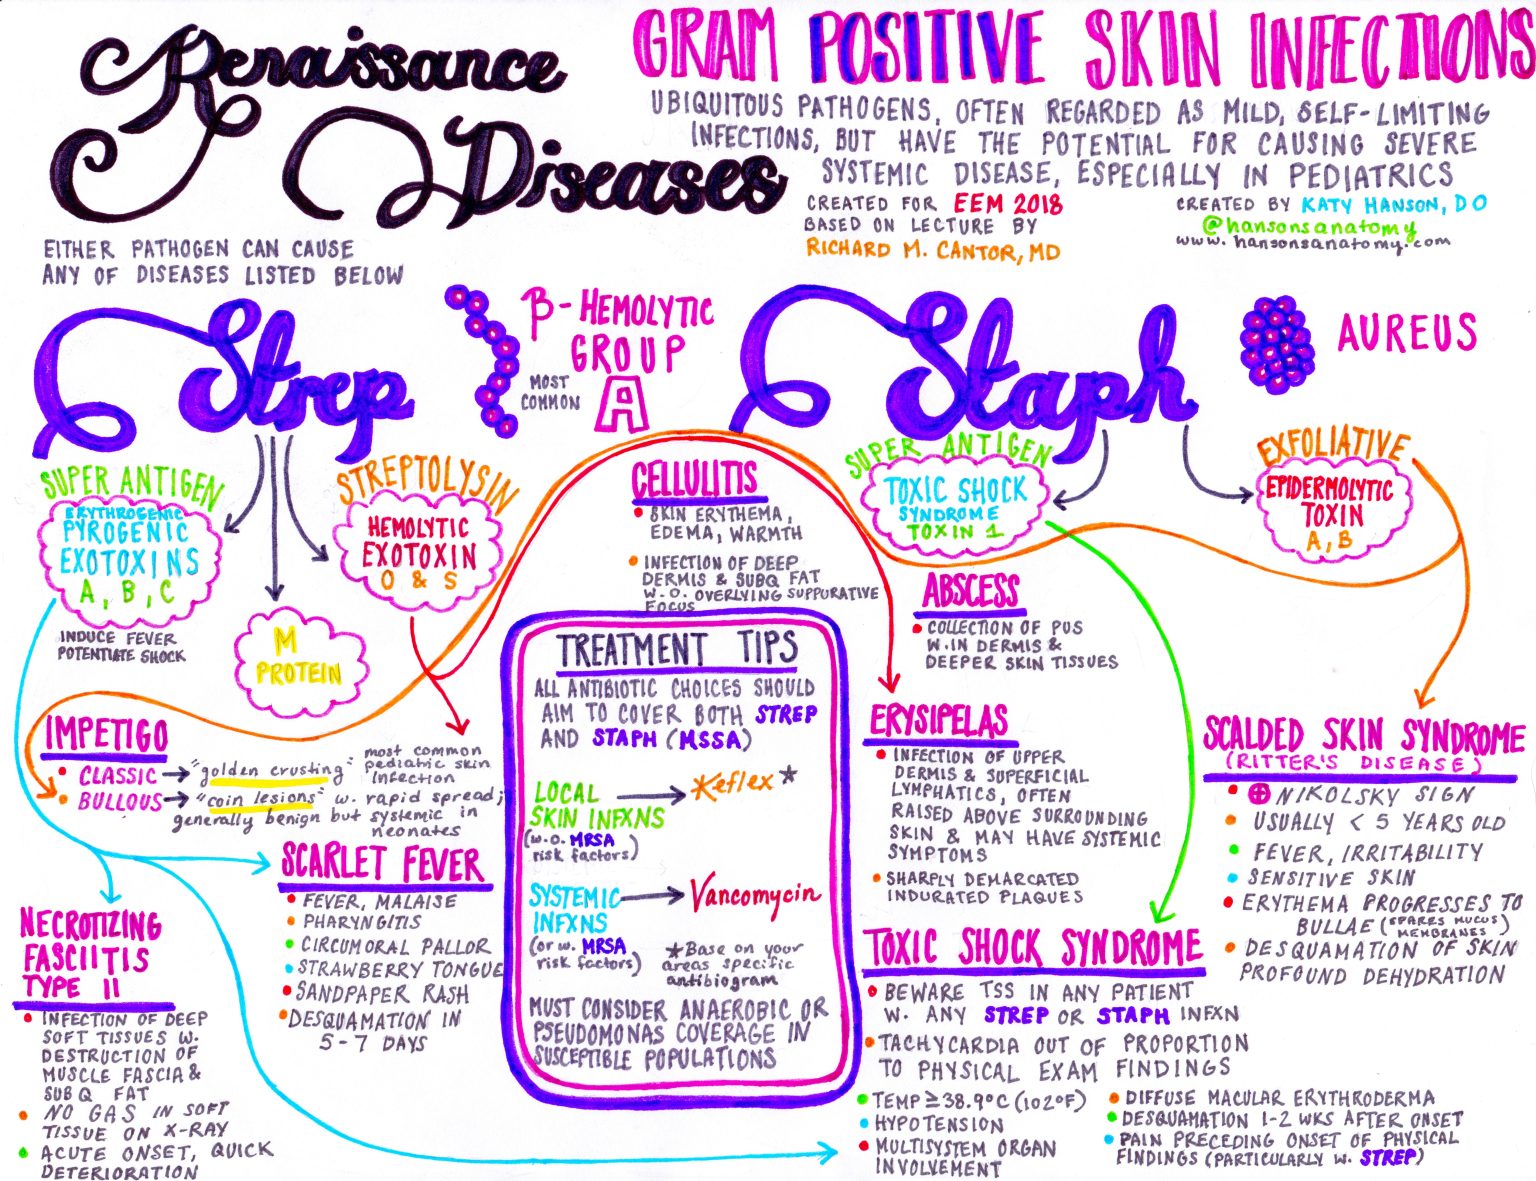 Renaissance
Diseases
GRAM POSITIVE SKIN INFECTIONS
UBIQUITOUS PATHOGENS, OFTEN REGARDED AS MILD, SELF-LIMITING
INFECTIONS, BUT HAVE THE POTENTIAL FOR CAUSING SEVERE
SYSTEMIC DISEASE, ESPECIALLY IN PEDIATRICS
CREATED FOR EEM 2018
BASED ON LECTURE BY
RICHARD M. CANTOR, MD
CREATED BY KATY HANSON, DO
@hansonsanatomy
www.hansonsanatomy.com
EITHER PATHOGEN CAN CAUSE
ANY OF DISEASES LISTED BELOW
Strep
β-HEMOLYTIC
GROUP
MOST
COMMON
A
Staph
AUREUS
SUPER ANTIGEN
ERYTHROGENIC
PYROGENIC
EXOTOXINS
A, B, C
INDUCE FEVER
POTENTIATE SHOCK
M
PROTEIN
STREPTOLYSIN
HEMOLYTIC
EXOTOXIN
O & S
SUPER ANTIGEN
TOXIC SHOCK
SYNDROME
TOXIN 1
EXFOLIATIVE
EPIDERMOLYTIC
TOXIN
A, B
CELLULITIS
SKIN ERYTHEMA,
EDEMA, WARMTH
INFECTION OF DEEP
DERMIS & SUBQ FAT
W.O. OVERLYING SUPPURATIVE
FOCUS
ABSCESS
COLLECTION OF PUS
W.IN DERMIS &
DEEPER SKIN TISSUES
IMPETIGO
CLASSIC → "golden crusting"
most common
pediatric skin
infection
BULLOUS → "coin lesions" w. rapid spread;
generally benign but systemic in
neonates
SCARLET FEVER
FEVER, MALAISE
PHARYNGITIS
CIRCUMORAL PALLOR
STRAWBERRY TONGUE
SANDPAPER RASH
DESQUAMATION IN
5-7 DAYS
NECROTIZING
FASCIITIS
TYPE II
INFECTION OF DEEP
SOFT TISSUES W.
DESTRUCTION OF
MUSCLE FASCIA &
SUBQ FAT
NO GAS IN SOFT
TISSUE ON X-RAY
ACUTE ONSET, QUICK
DETERIORATION
TREATMENT TIPS
ALL ANTIBIOTIC CHOICES SHOULD
AIM TO COVER BOTH STREP
AND STAPH (MSSA)
LOCAL
SKIN INFXNS
(w.o. MRSA
risk factors)
→ Keflex*
SYSTEMIC
INFXNS
(or w. MRSA
risk factors)
→ Vancomycin
*Base on your
areas specific
antibiogram
MUST CONSIDER ANAEROBIC OR
PSEUDOMONAS COVERAGE IN
SUSCEPTIBLE POPULATIONS
ERYSIPELAS
INFECTION OF UPPER
DERMIS & SUPERFICIAL
LYMPHATICS, OFTEN
RAISED ABOVE SURROUNDING
SKIN & MAY HAVE SYSTEMIC
SYMPTOMS
SHARPLY DEMARCATED
INDURATED PLAQUES
SCALDED SKIN SYNDROME
(RITTER'S DISEASE)
⊕ NIKOLSKY SIGN
USUALLY < 5 YEARS OLD
FEVER, IRRITABILITY
SENSITIVE SKIN
ERYTHEMA PROGRESSES TO
BULLAE (SPARES MUCUS
MEMBRANES)
DESQUAMATION OF SKIN
PROFOUND DEHYDRATION
TOXIC SHOCK SYNDROME
BEWARE TSS IN ANY PATIENT
W. ANY STREP OR STAPH INFXN
TACHYCARDIA OUT OF PROPORTION
TO PHYSICAL EXAM FINDINGS
TEMP ≥ 38.9°C (102°F)
HYPOTENSION
MULTISYSTEM ORGAN
INVOLVEMENT
DIFFUSE MACULAR ERYTHRODERMA
DESQUAMATION 1-2 WKS AFTER ONSET
PAIN PRECEDING ONSET OF PHYSICAL
FINDINGS (PARTICULARLY W. STREP)